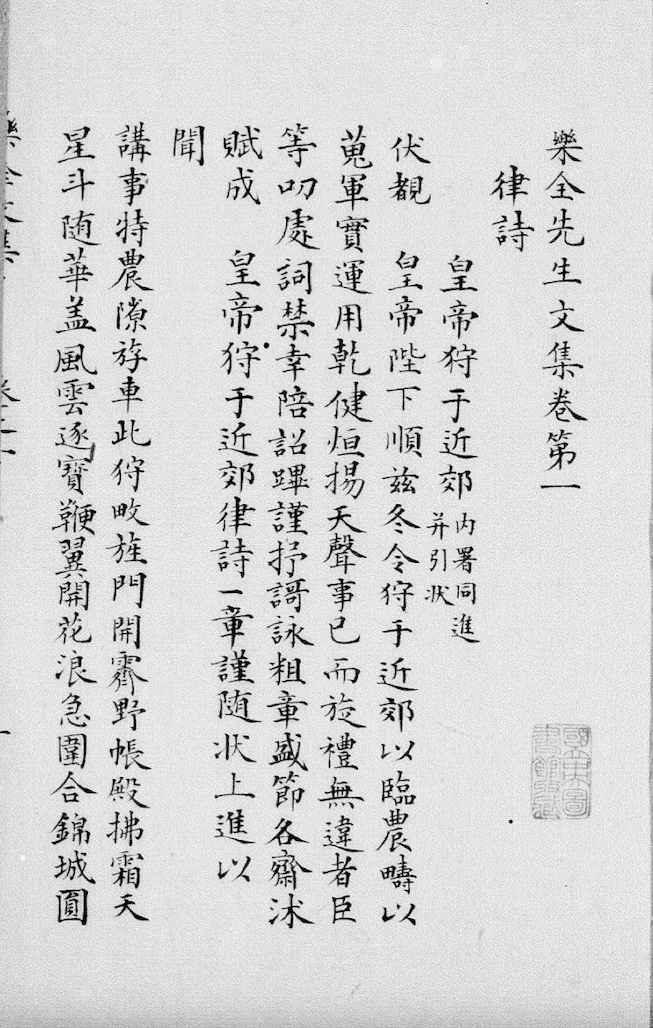 樂全先生文集卷第一
律詩
皇帝狩于近郊 内署同進 并引狀
伏覩 皇帝陛下順兹冬令狩于近郊以臨農疇以
蒐軍實運用乾健烜揚天聲事已而旋禮無違者臣
等叨處詞禁幸陪詔蹕謹抒謌詠粗章盛節各齋沭
賦成 皇帝狩于近郊律詩一章謹随狀上進以
聞
講事特農隙斿車此狩畋旌門開霽野帳殿拂霜天
星斗随華盖風雲逐寳鞭翼開花浪急圍合錦城圎
國立中央圖書館收藏